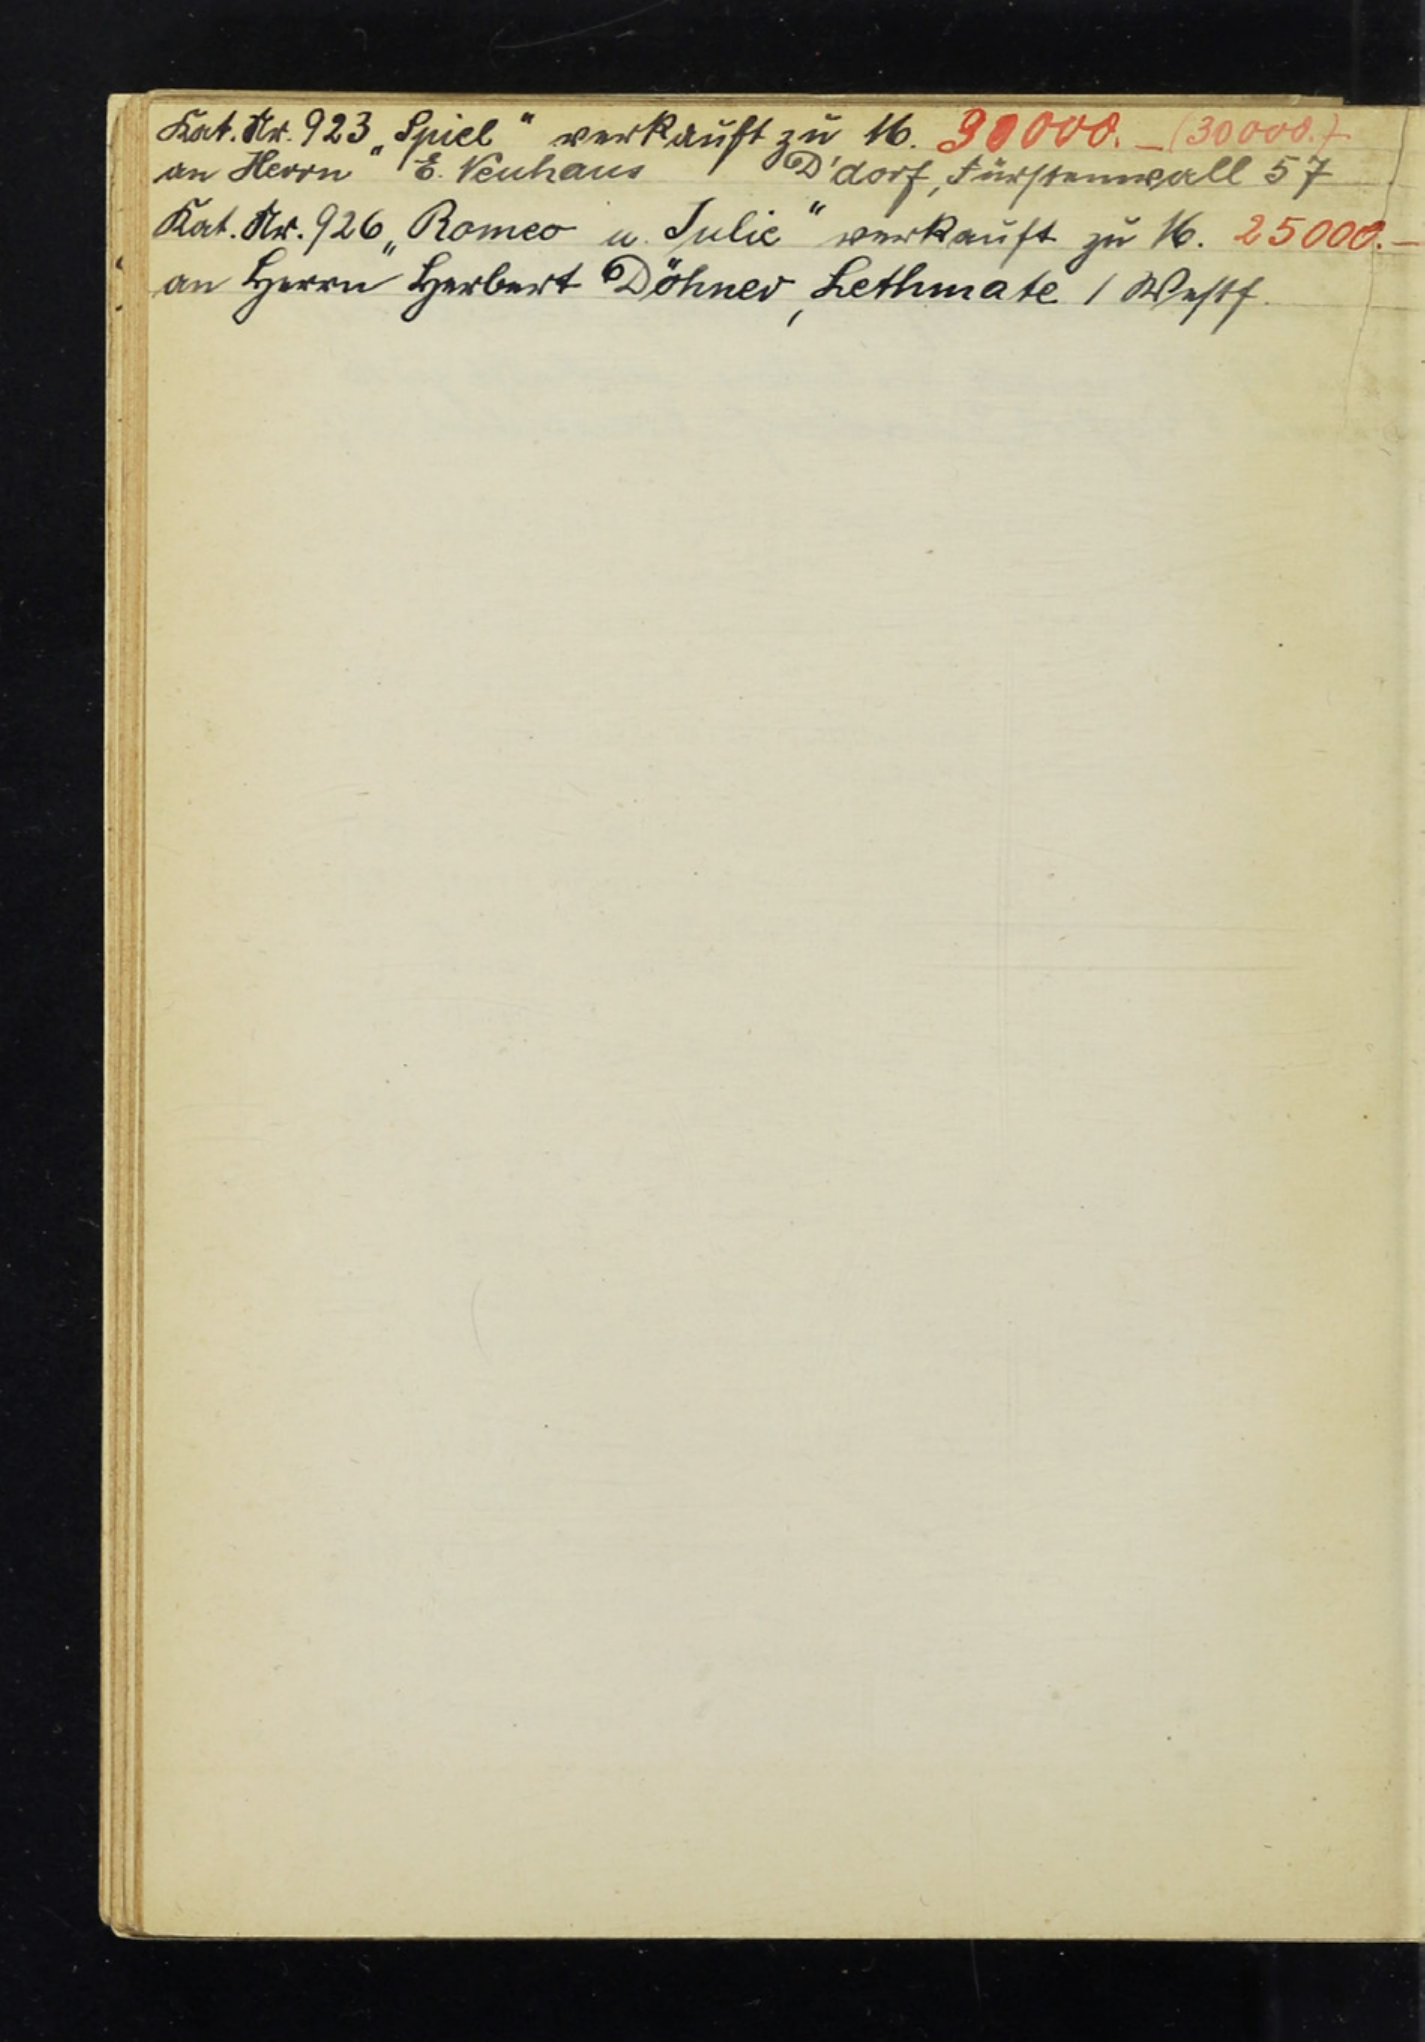 Kat. Nr. 923 „Spiel“ verkauft zu M. 30000.— (30000.)
an Herrn E. Neuhaus D'dorf, Fürstenwall 57
Kat. Nr. 926 „Romeo u. Julie“ verkauft zu M. 25000.—
an Herrn Herbert Döhner, Lethmate / Westf.